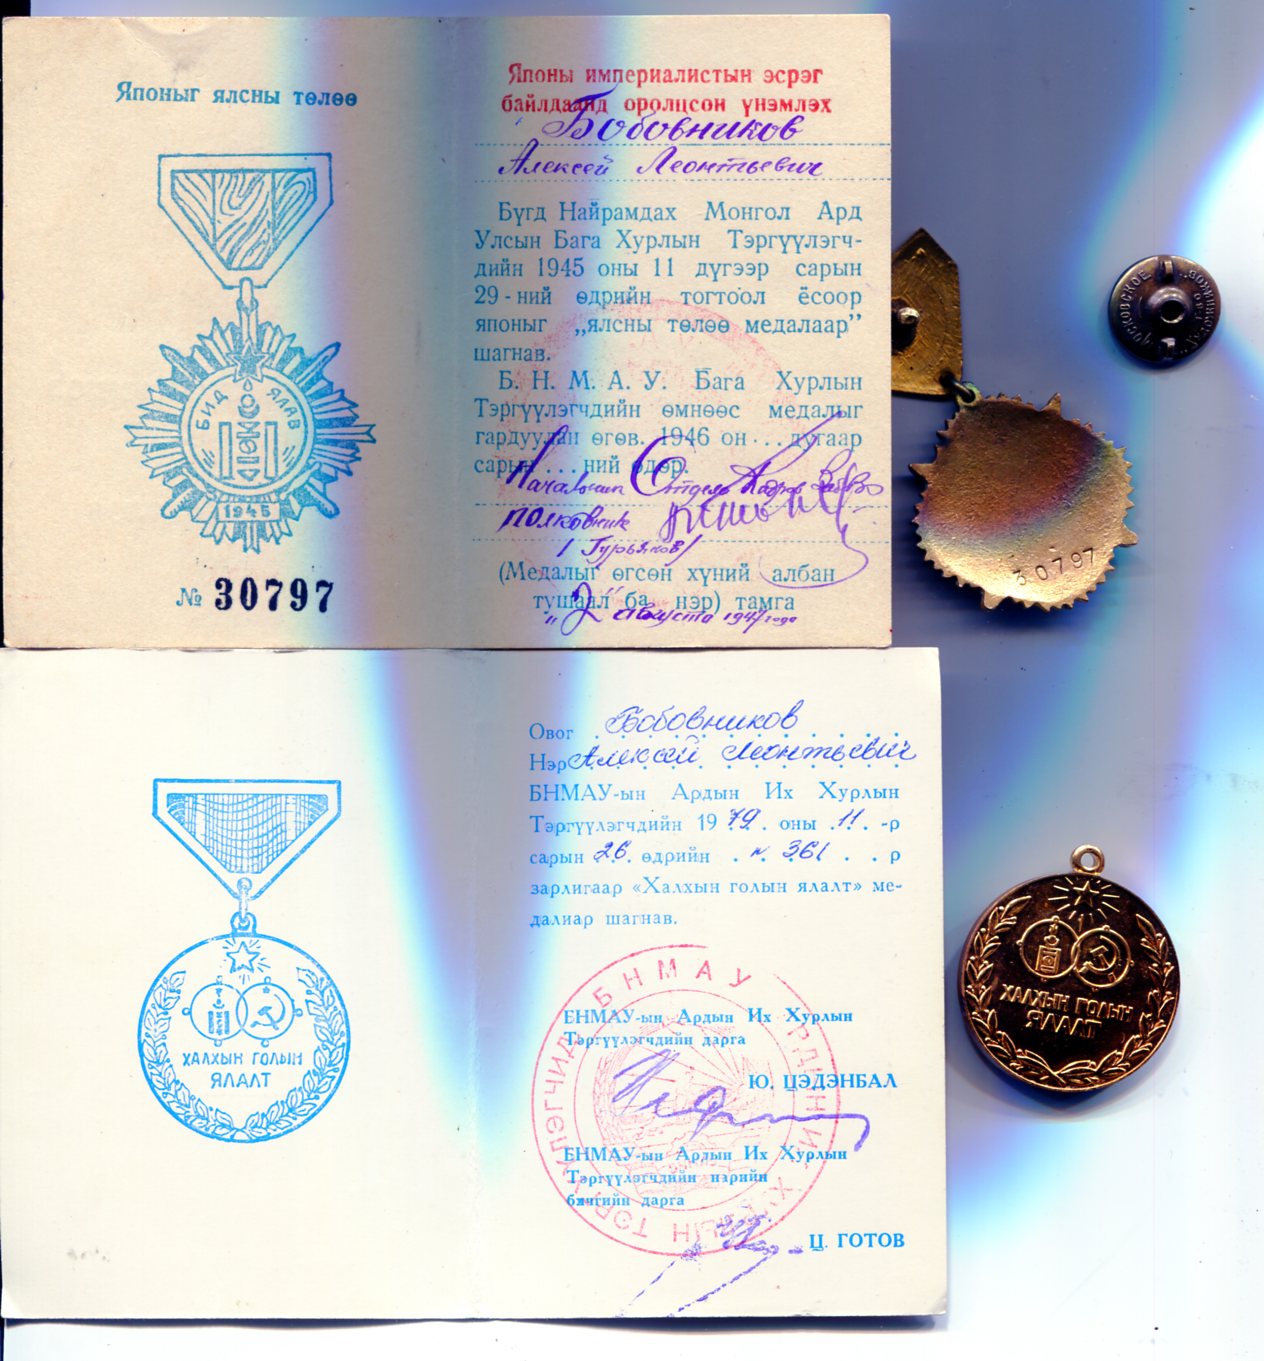 Японыг ялсны төлөө
БИД ЯЛАВ
1945
№ 30797
Японы империалистын эсрэг
байлдаанд оролцсон үнэмлэх
Бобовников
Алексей Леонтьевич
Бүгд Найрамдах Монгол Ард
Улсын Бага Хурлын Тэргүүлэгч-
дийн 1945 оны 11 дүгээр сарын
29-ний өдрийн тогтоол ёсоор
японыг „ялсны төлөө медалаар"
шагнав.
Б. Н. М. А. У. Бага Хурлын
Тэргүүлэгчдийн өмнөөс медалыг
гардуулан өгөв. 1946 он ... дугаар
сарын ... ний өдөр.
Начальник Отдела Кадров
полковник
/Гурьянов/
(Медалыг өгсөн хүний албан
тушаал ба нэр) тамга
"2" августа 1947 года
30797
МОСКОВСКОЕ
ХАЛХЫН ГОЛЫН
ЯЛАЛТ
Овог Бобовников
Нэр Алексей Леонтьевич
БНМАУ-ын Ардын Их Хурлын
Тэргүүлэгчдийн 1979 оны 11 -р
сарын 26 өдрийн N 361 р
зарлигаар «Халхын голын ялалт» ме-
далиар шагнав.
БНМАУ-ын Ардын Их Хурлын
Тэргүүлэгчдийн дарга
Ю. ЦЭДЭНБАЛ
БНМАУ-ын Ардын Их Хурлын
Тэргүүлэгчдийн нарийн
бичгийн дарга
Ц. ГОТОВ
БНМАУ
ХАЛХЫН ГОЛЫН
ЯЛАЛТ